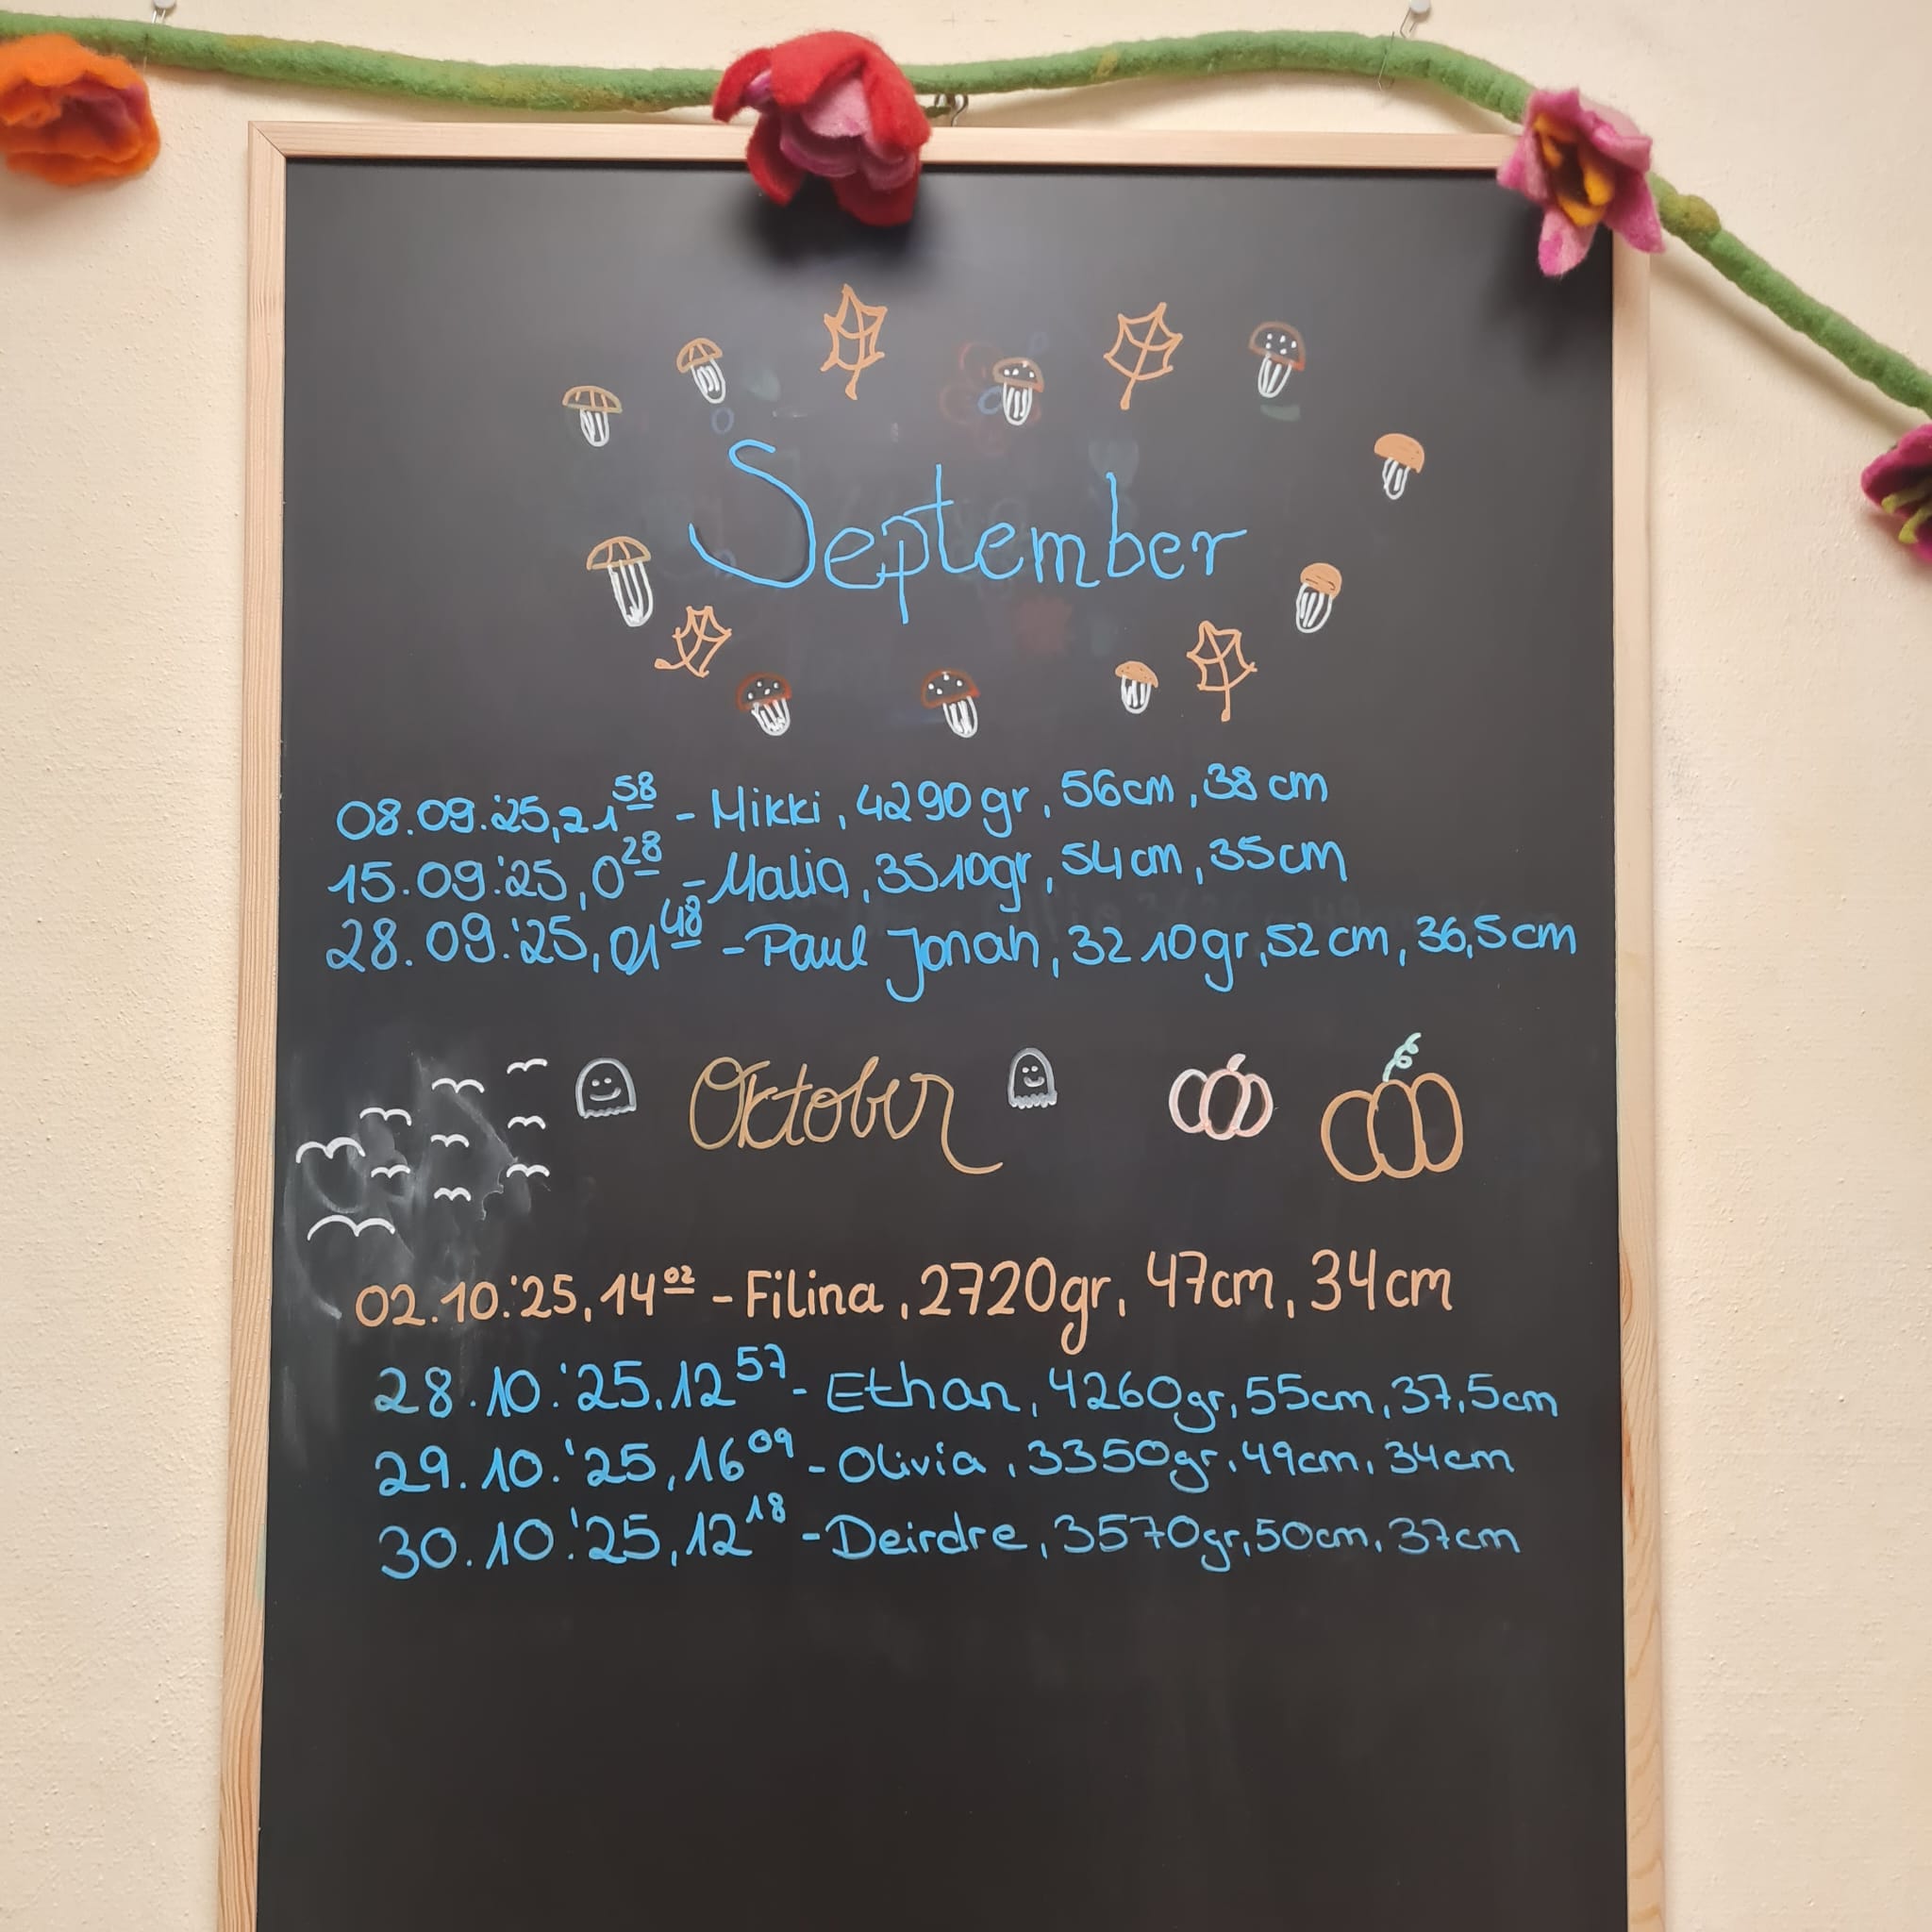 September
08.09.'25, 21⁵⁸ - Mikki, 4290gr, 56cm, 38cm
15.09.'25, 0²⁸ - Malia, 3510gr, 54cm, 35cm
28.09.'25, 01⁴⁸ - Paul Jonah, 3210gr, 52cm, 36,5cm
Oktober
02.10.'25, 14⁰² - Filina, 2720gr, 47cm, 34cm
28.10.'25, 12⁵⁷ - Ethan, 4260gr, 55cm, 37,5cm
29.10.'25, 16⁰⁹ - Olivia, 3350gr, 49cm, 34cm
30.10.'25, 12¹⁸ - Deirdre, 3570gr, 50cm, 37cm